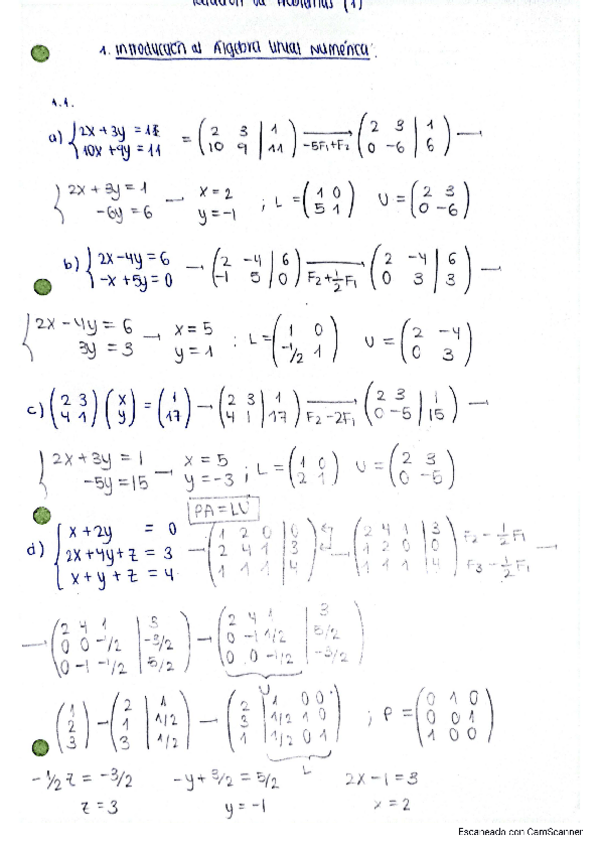 Relación de Problemas (1)
1. Introducción al Álgebra Lineal Numérica.
1.1.
a) { 2x + 3y = 1 ; 10x + 9y = 11 = ( 2 3 | 1 ; 10 9 | 11 ) → -5F1+F2 ( 2 3 | 1 ; 0 -6 | 6 ) —
{ 2x + 3y = 1 ; -6y = 6 — x = 2 ; y = -1 ; L = ( 1 0 ; 5 1 ) U = ( 2 3 ; 0 -6 )
b) { 2x - 4y = 6 ; -x + 5y = 0 → ( 2 -4 | 6 ; -1 5 | 0 ) → F2 + 1/2 F1 ( 2 -4 | 6 ; 0 3 | 3 ) —
{ 2x - 4y = 6 ; 3y = 3 → x = 5 ; y = 1 : L = ( 1 0 ; -1/2 1 ) U = ( 2 -4 ; 0 3 )
c) ( 2 3 ; 4 1 ) ( x ; y ) = ( 1 ; 17 ) — ( 2 3 | 1 ; 4 1 | 17 ) → F2 - 2F1 ( 2 3 | 1 ; 0 -5 | 15 ) —
{ 2x + 3y = 1 ; -5y = 15 → x = 5 ; y = -3 ; L = ( 1 0 ; 2 1 ) U = ( 2 3 ; 0 -5 )
PA = LU
d) { x + 2y = 0 ; 2x + 4y + z = 3 ; x + y + z = 4 → ( 1 2 0 | 0 ; 2 4 1 | 3 ; 1 1 1 | 4 ) → ( 2 4 1 | 3 ; 1 2 0 | 0 ; 1 1 1 | 4 ) F2 - 1/2 F1 ; F3 - 1/2 F1 —
→ ( 2 4 1 | 3 ; 0 0 -1/2 | -3/2 ; 0 -1 -1/2 | 5/2 ) → ( 2 4 1 | 3 ; 0 -1 1/2 | 5/2 ; 0 0 -1/2 | -3/2 )
U
( 1 ; 2 ; 3 ) — ( 2 | 1 ; 1 | 1/2 ; 3 | 1/2 ) — ( 2 | 1 0 0 ; 3 | 1/2 1 0 ; 1 | 1/2 0 1 ) ; P = ( 0 1 0 ; 0 0 1 ; 1 0 0 )
L
-1/2 z = -3/2 -y + 3/2 = 5/2 2x - 1 = 3
z = 3 y = -1 x = 2
Escaneado con CamScanner